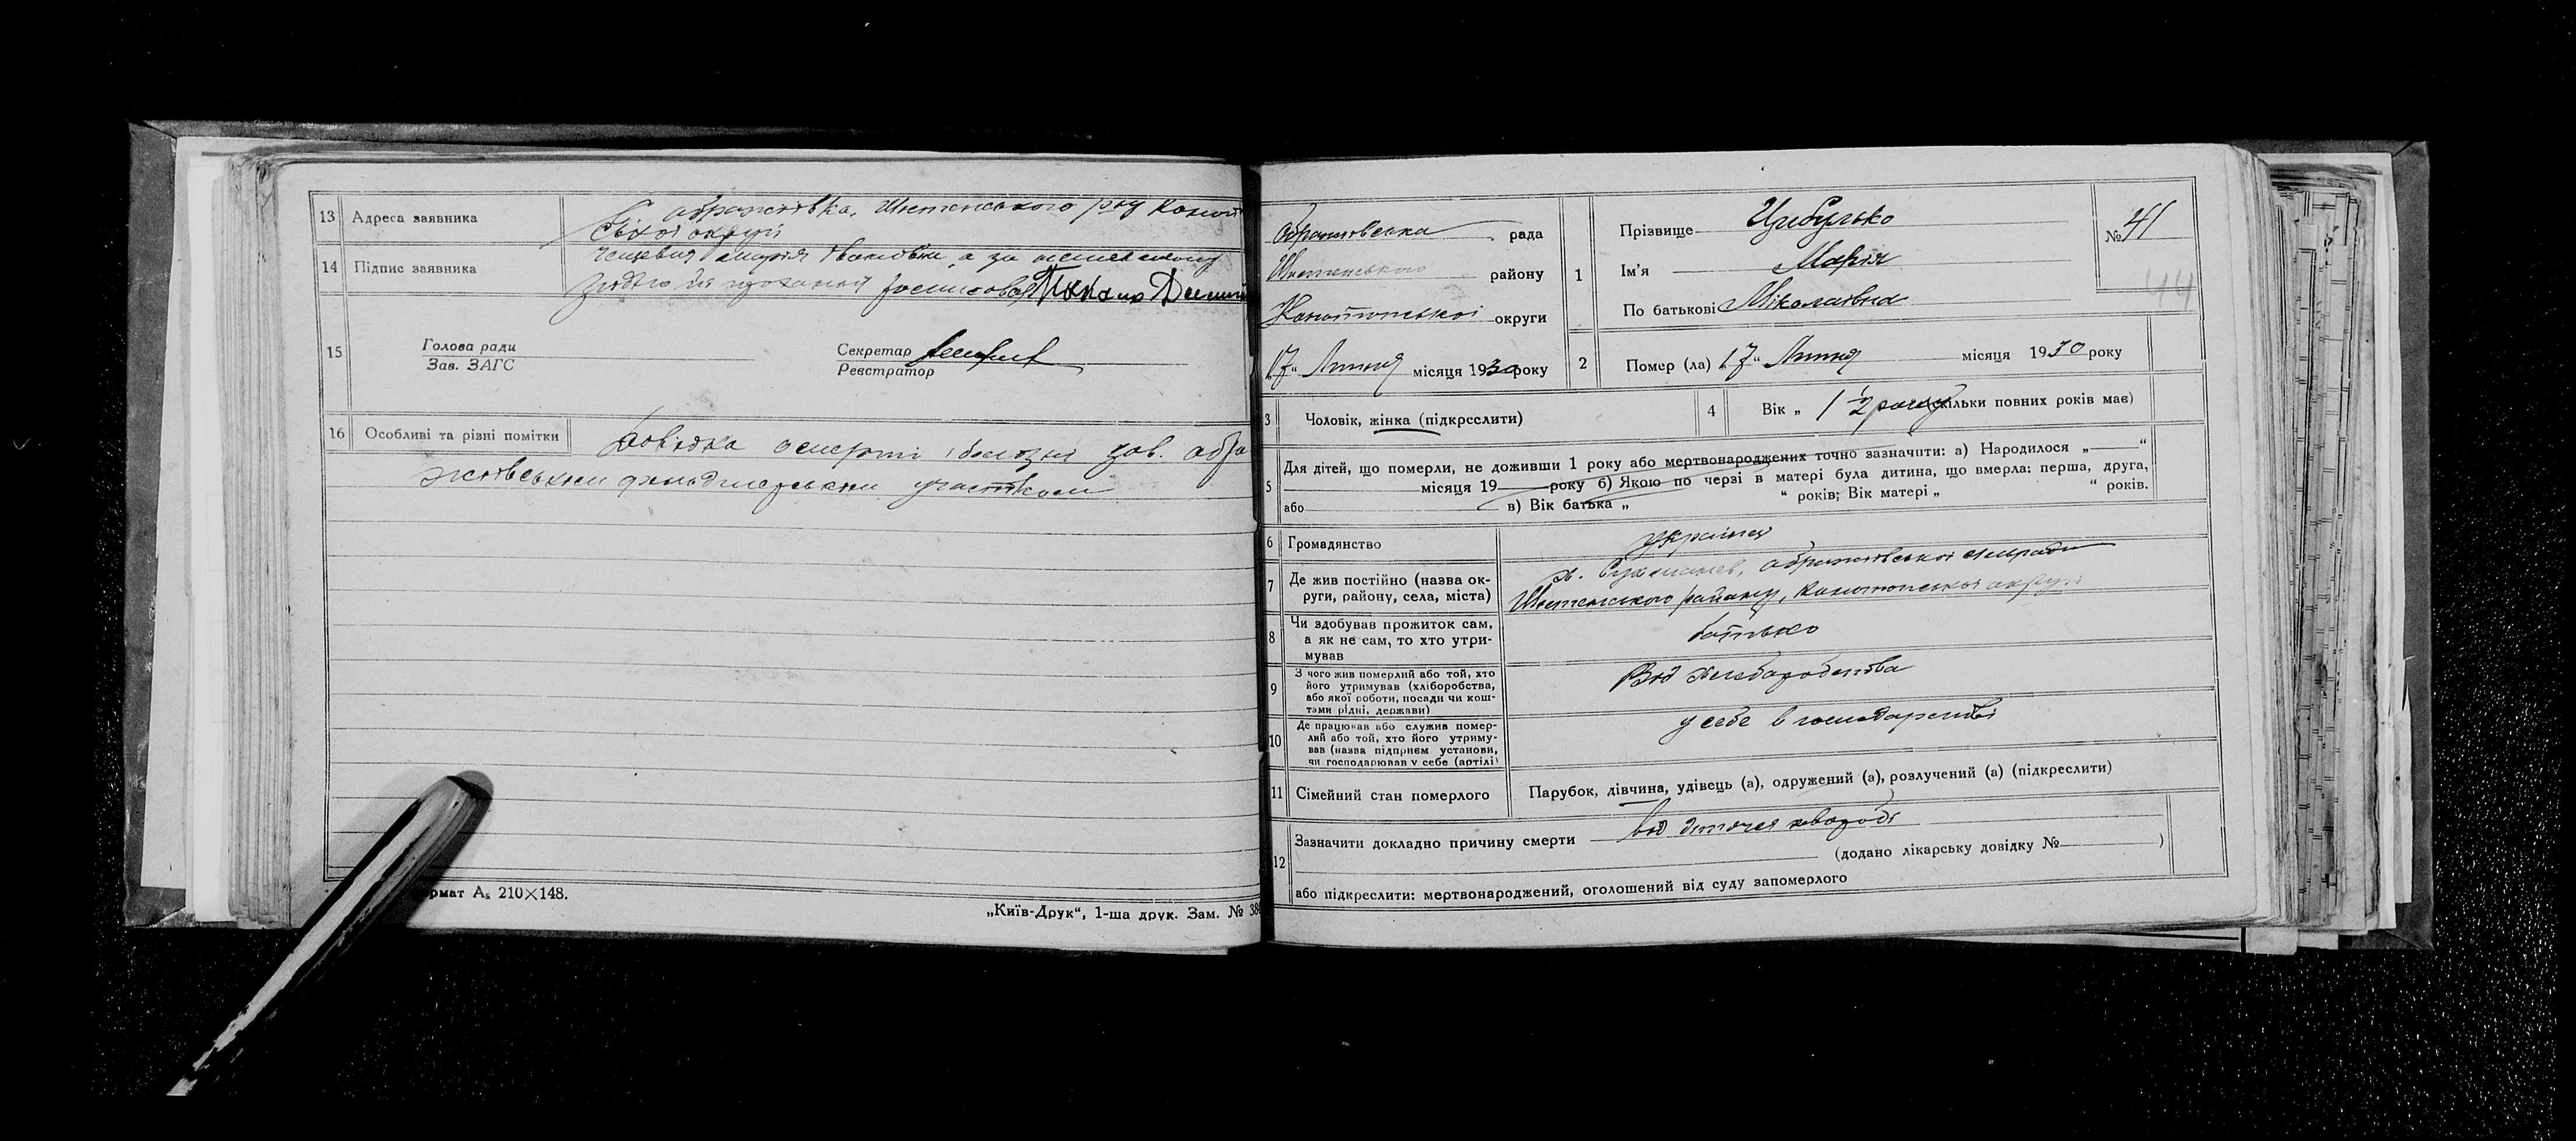 13 Адреса заявника
Шостенського р-ну Коноп
ської округи
14 Підпис заявника
Марія Іванівна, а за неписьменну
15 Голова ради
Зав. ЗАГС
Секретар
Реєстратор
16 Особливі та різні помітки
Довідка о смерті
участком
формат А₅ 210×148.
„Київ-Друк“, 1-ша друк. Зам. № 38
рада
Шостенського району
Конотопської округи
17„ Липня місяця 1930 року
1 Прізвище Цибулько
Ім’я Марія
По батькові Миколаївна
№ 41
44
2 Помер (ла) 17„ Липня місяця 1930 року
3 Чоловік, жінка (підкреслити)
4 Вік „ 1 ½ року (скільки повних років має)
5 Для дітей, що померли, не доживши 1 року або мертвонароджених точно зазначити: а) Народилося „ “
місяця 19 року б) Якою по черзі в матері була дитина, що вмерла: перша, друга,
або в) Вік батька „ “ років; Вік матері „ “ років.
6 Громадянство
україна
7 Де жив постійно (назва ок-
руги, району, села, міста)
х. сельради
Шостенського району, Конотопської округи
8 Чи здобував прожиток сам,
а як не сам, то хто утри-
мував
батько
9 З чого жив померлий або той, хто
його утримував (хліборобства,
або якої роботи, посади чи кош-
тами рідні, держави)
Від хлеборобства
10 Де працював або служив помер-
лий або той, хто його утриму-
вав (назва підприєм установи,
чи господарював у себе (артілі)
у себе в господарстві
11 Сімейний стан померлого
Парубок, дівчина, удівець (а), одружений (а), розлучений (а) (підкреслити)
12 Зазначити докладно причину смерти від
(додано лікарську довідку № )
або підкреслити: мертвонароджений, оголошений від суду запомерлого